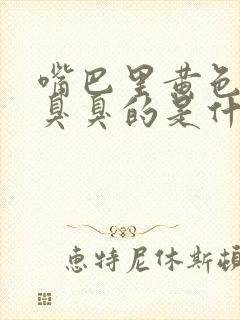 嘴巴里黄色
臭臭的是什
惠特尼休斯顿